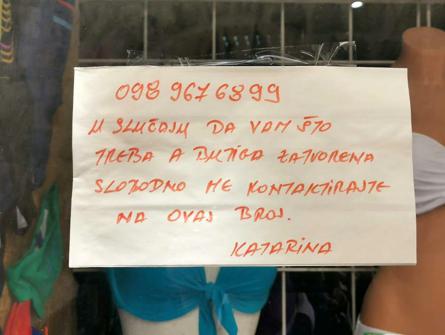 098 967 6899
U SLUČAJU DA VAM ŠTO
TREBA A BUTIGA ZATVORENA
SLOBODNO ME KONTAKTIRAJTE
NA OVAJ BROJ.
KATARINA